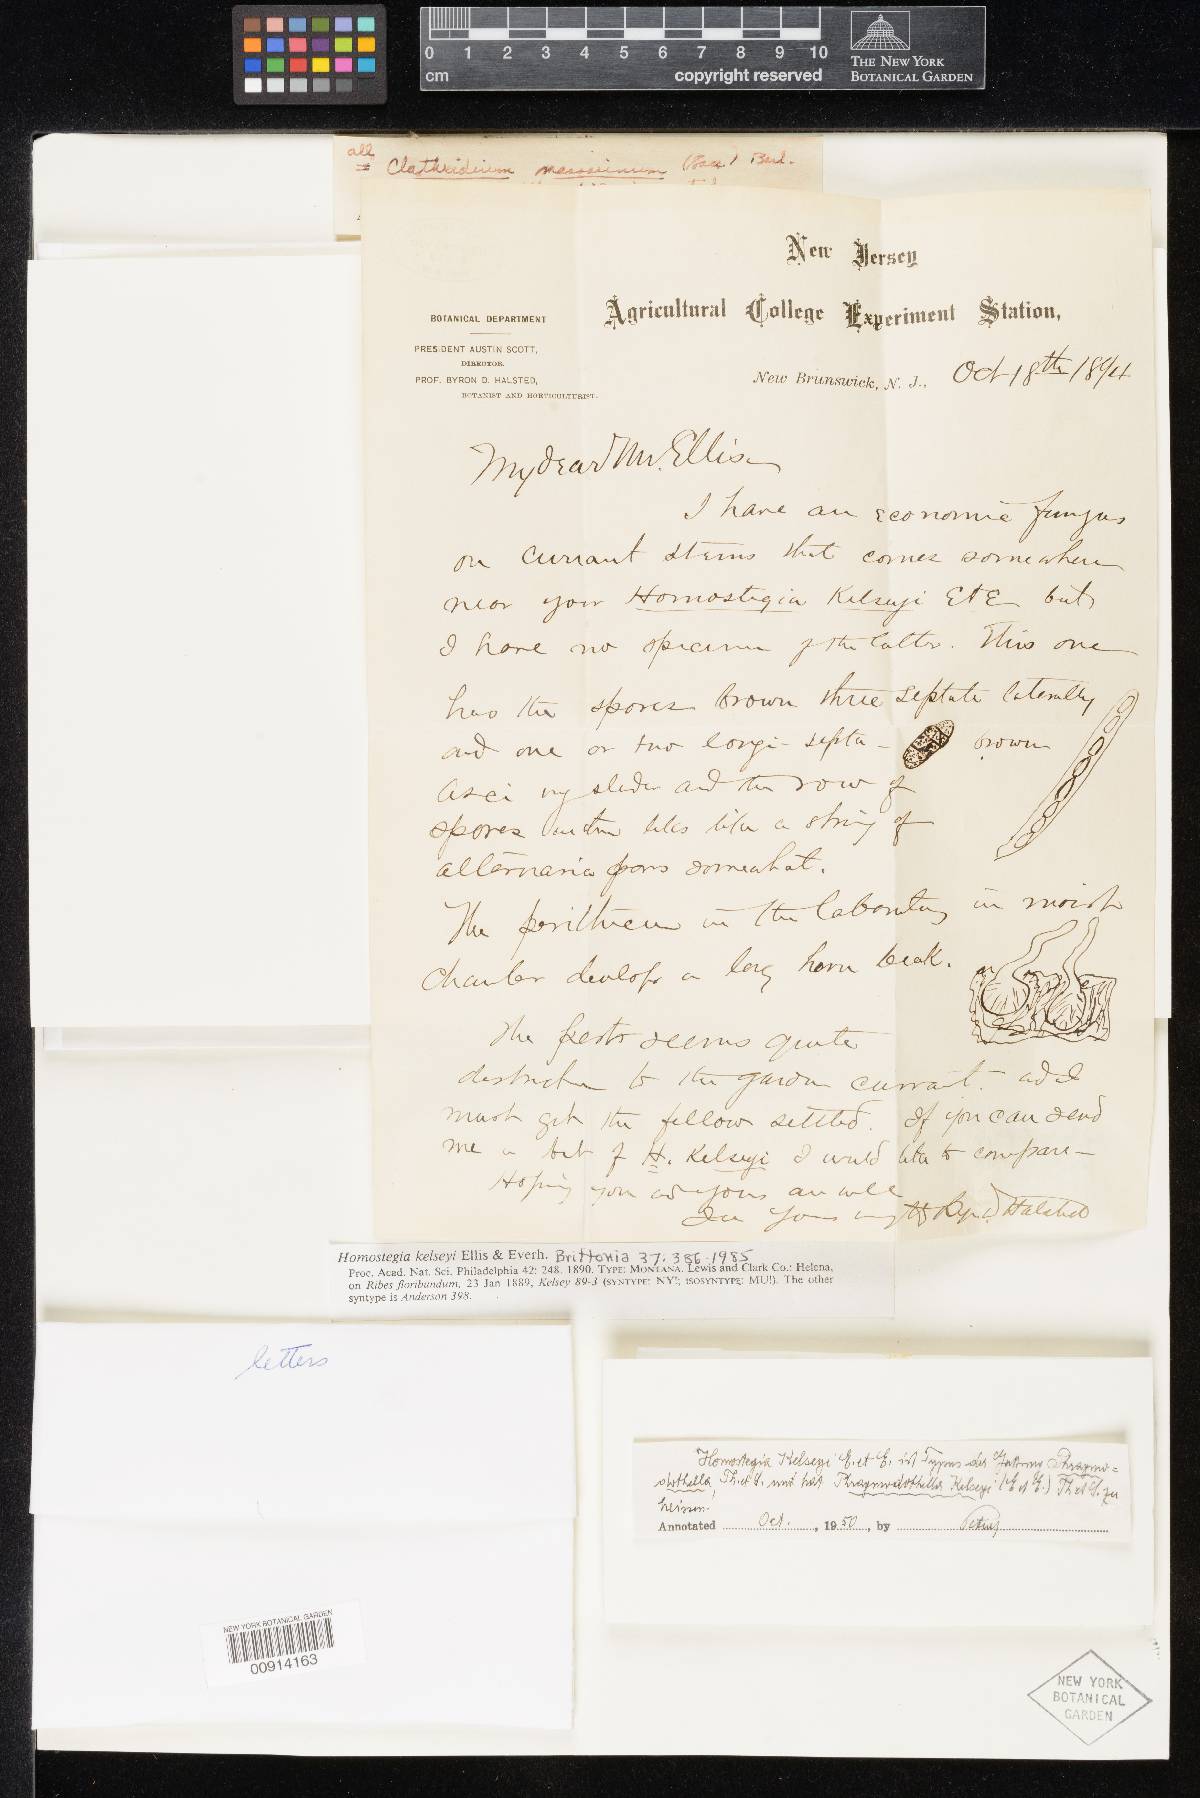 0 1 2 3 4 5 6 7 8 9 10
cm
copyright reserved
THE NEW YORK
BOTANICAL GARDEN
all
= Clathridium (Sacc) Berl.
New Jersey
Agricultural College Experiment Station,
BOTANICAL DEPARTMENT
PRESIDENT AUSTIN SCOTT,
DIRECTOR.
PROF. BYRON D. HALSTED,
BOTANIST AND HORTICULTURIST.
New Brunswick, N. J., Oct 18th 1894
My dear Mr. Ellis
I have an economic fungus
on currant stems that comes somewhere
near your Homostegia Kelseyi E&E but
I have no specimen of the latter. This one
has the spores brown three septate laterally
and one or two longi-septa - brown
Asci slender and the row of
spores like a string of
alternaria spores somewhat.
The perithecia in the laboratory in moist
chamber develop a long horn beak.
The pest seems quite
destructive to the garden currant. and I
must get the fellow settled. If you can send
me a bit of H. Kelseyi I would like to compare -
Hoping you and yours are well
I am Yours Byron D. Halsted
Homostegia kelseyi Ellis & Everh. Brittonia 37: 386. 1985
Proc. Acad. Nat. Sci. Philadelphia 42: 248. 1890. TYPE: MONTANA. Lewis and Clark Co.: Helena,
on Ribes floribundum, 23 Jan 1889, Kelsey 89-3 (SYNTYPE: NY!; ISOSYNTYPE: MU!). The other
syntype is Anderson 398.
letters
Homostegia Kelseyi E. et E. ist Typus der Gattung Phragmo=
dothella Th. et S. und hat Phragmodothella Kelseyi (E. et E.) Th. et S. zu
heissen.
Annotated Oct. , 1950 , by Petrak
NEW YORK BOTANICAL GARDEN
00914163
NEW YORK
BOTANICAL
GARDEN